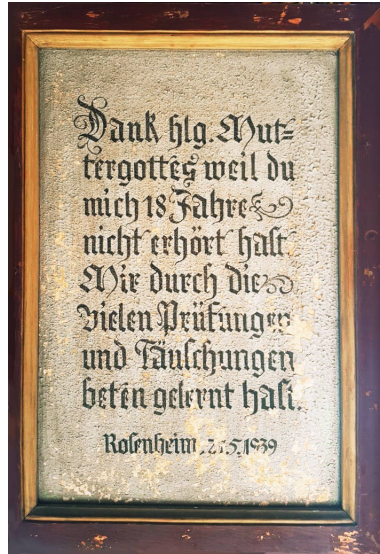 Dank hlg. Mut=
tergottes weil du
mich 18 Jahre
nicht erhört hast
Mir durch die
vielen Prüfungen
und Täuschungen
beten gelernt hast.
Rosenheim, 5.1939